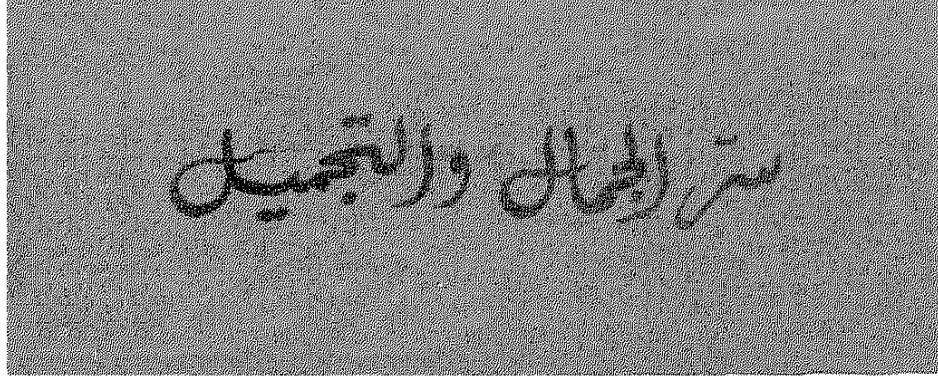 سر الجمال والتجميل